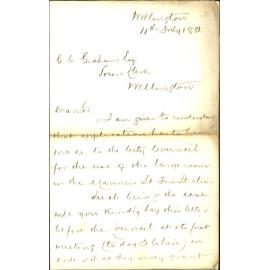 Wellington
11th July 188
C C Graham Esq
Town Clerk
Wellington
Dear Sir
I am given to understand
that application has to be
made to the City Council
for the use of the large room
in the Manners St Fire Station
Such being the case
will you kindly lay this letter
before the Council at its first
meeting (to day I believe) in
order that they may grant